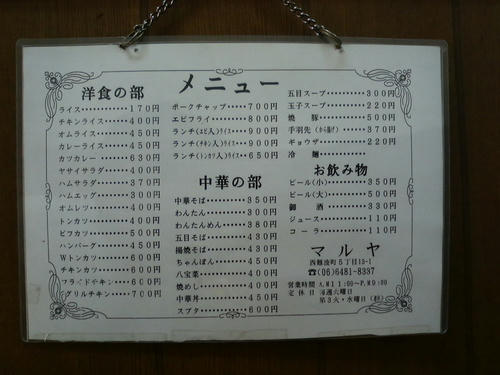 メニュー
洋食の部
ライス 170円
チキンライス 400円
オムライス 450円
カレーライス 450円
カツカレー 630円
ヤサイサラダ 400円
ハムサラダ 370円
ハムエッグ 300円
オムレツ 400円
トンカツ 400円
ビフカツ 500円
ハンバーグ 450円
Wトンカツ 600円
チキンカツ 600円
フライドチキン 600円
グリルチキン 700円
ポークチャップ 700円
エビフライ 800円
ランチ(エビ入)ライス 900円
ランチ(チキン入)ライス 900円
ランチ(トンカツ入)ライス 650円
中華の部
中華そば 350円
わんたん 300円
わんたんめん 380円
五目そば 430円
揚焼そば 430円
ちゃんぽん 450円
八宝菜 400円
焼めし 400円
中華丼 450円
スブタ 600円
五目スープ 300円
玉子スープ 220円
焼豚 500円
手羽先(から揚げ) 370円
ギョウザ 220円
冷麺
お飲み物
ビール(小) 350円
ビール(大) 500円
御酒 330円
ジュース 110円
コーラ 110円
マルヤ
西難波町5丁目13-1
☎(06)6481-8337
営業時間 A.M11:00~P.M9:00
定休日 毎週火曜日
第3火・水曜日(連)